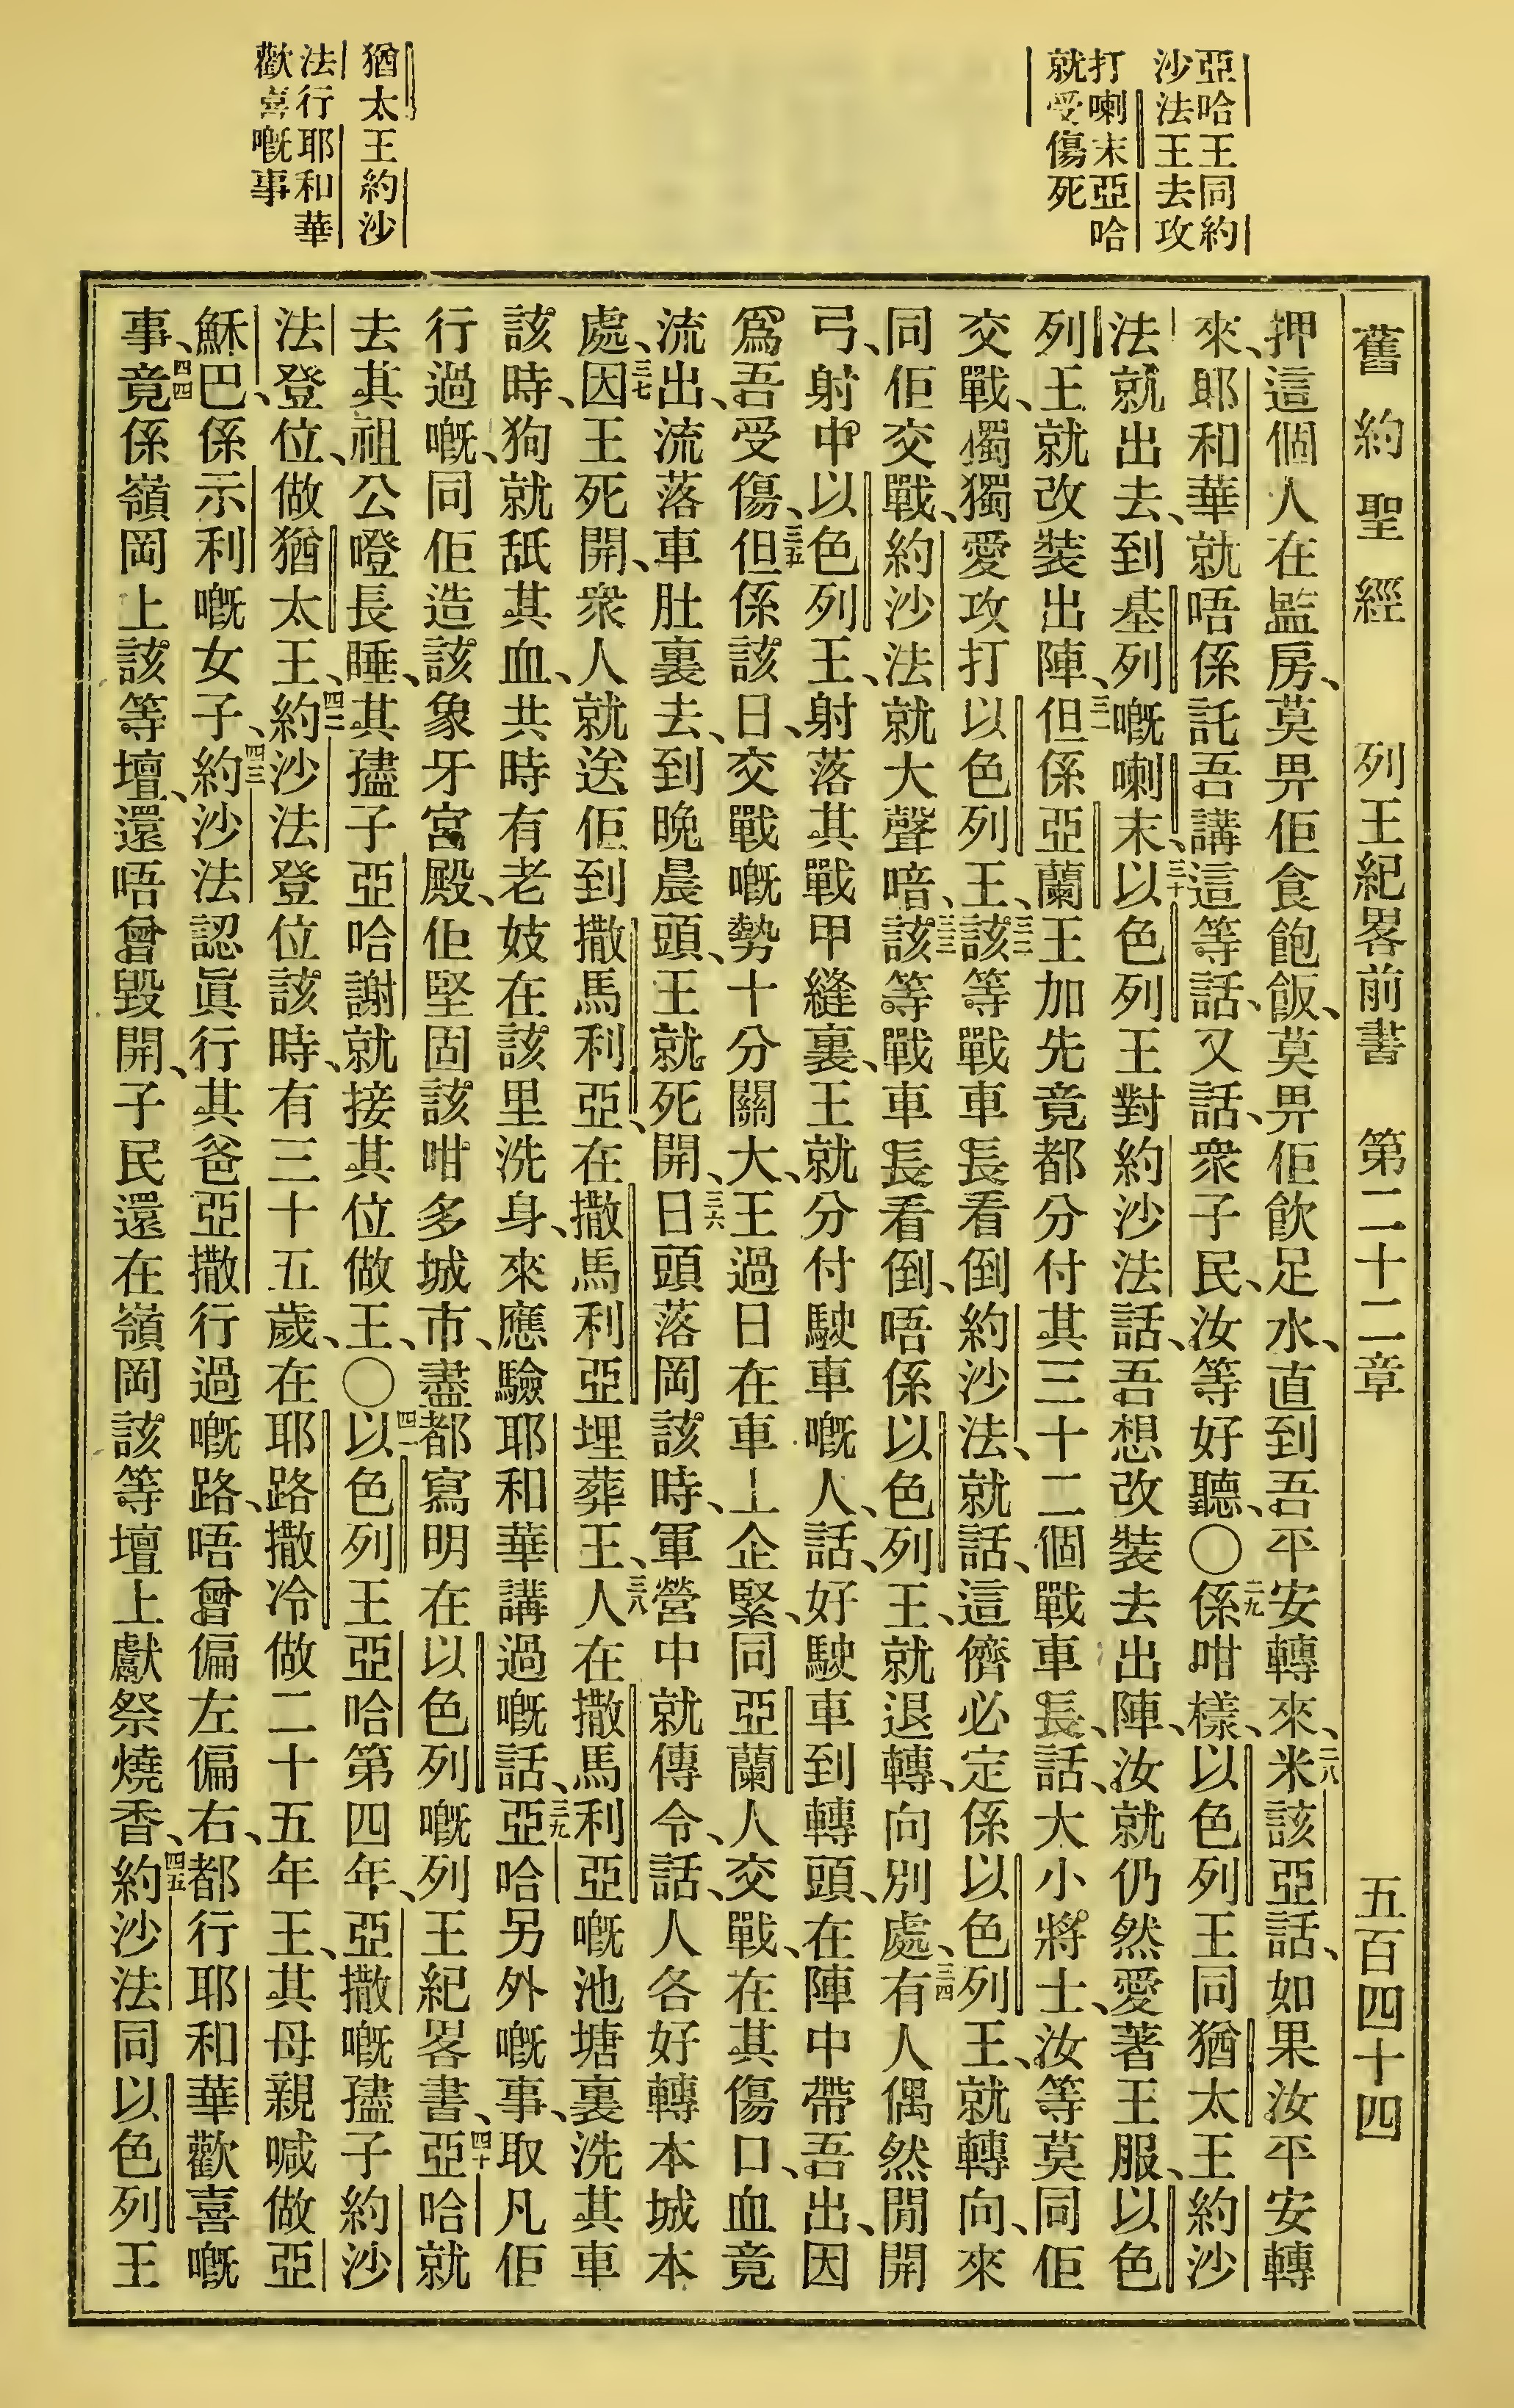 亞哈王同約
沙法王去攻
打喇末亞哈
就受傷死
猶太王約沙
法行耶和華
歡喜嘅事
舊約聖經 列王紀畧前書 第二十二章 五百四十四
押這個人在監房、莫畀佢食飽飯、莫畀佢飲足水、直到吾平安轉來、二八米該亞話、如果汝平安轉
來、耶和華就唔係託吾講這等話、又話、衆子民、汝等好聽、〇二九係咁樣、以色列王同猶太王約沙
法就出去、到基列嘅喇末、三十以色列王對約沙法話、吾想改裝去出陣、汝就仍然愛著王服、以色
列王就改裝出陣、三一但係亞蘭王加先竟都分付其三十二個戰車長、話、大小將士、汝等莫同佢
交戰、獨獨愛攻打以色列王、三二該等戰車長看倒約沙法、就話、這儕必定係以色列王、就轉向、來
同佢交戰、約沙法就大聲喑、三三該等戰車長看倒、唔係以色列王、就退轉、向別處、三四有人偶然開開
弓、射中以色列王、射落其戰甲縫裏、王就分付駛車嘅人、話、好駛車到轉頭、在陣中帶吾出、因
爲吾受傷、三五但係該日、交戰嘅勢十分關大、王過日在車上企緊、同亞蘭人交戰、在其傷口、血竟
流出、流落車肚裏去、到晚晨頭、王就死開、三六日頭落岡該時、軍營中就傳令、話、人各好轉本城本
處、三七因王死開、衆人就送佢到撒馬利亞、在撒馬利亞埋葬王、三八人在撒馬利亞嘅池塘裏洗其車
該時、狗就舐其血、共時有老妓在該里洗身、來應驗耶和華講過嘅話、三九亞哈另外嘅事、取凡佢
行過嘅、同佢造該象牙宮殿、佢堅固該咁多城市、盡都寫明在以色列嘅列王紀畧書、四十亞哈就
去其祖公嶝長睡、其孻子亞哈謝就接其位做王、〇四一以色列王亞哈第四年、亞撒嘅孻子約沙
法登位、做猶太王、四二約沙法登位該時、有三十五歲、在耶路撒冷做二十五年王、其母親喊做亞
穌巴、係示利嘅女子、四三約沙法認眞行其爸亞撒行過嘅路、唔曾偏左偏右、都行耶和華歡喜嘅
事、四四竟係嶺岡上該等壇、還唔曾毀開、子民還在嶺岡該等壇上獻祭燒香、四五約沙法同以色列王